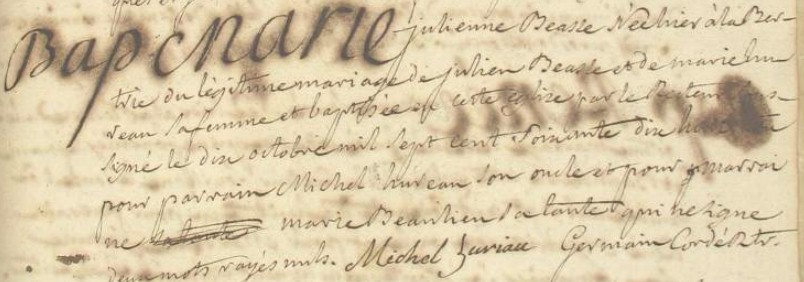 Bap. Marie julienne Beasse Née hier à la Ber-
trie du légitime mariage de julien Beasse et de marie hu-
reau sa femme et baptisée en cette église par le Recteur sous-
signé le dix octobre mil sept cent soixante dix
pour parrain Michel hureau son oncle et pour marrai
ne marie Beaulieu sa tante qui ne signe
deux mots rayés nuls. Michel huriau Germain Cordé Rtr.